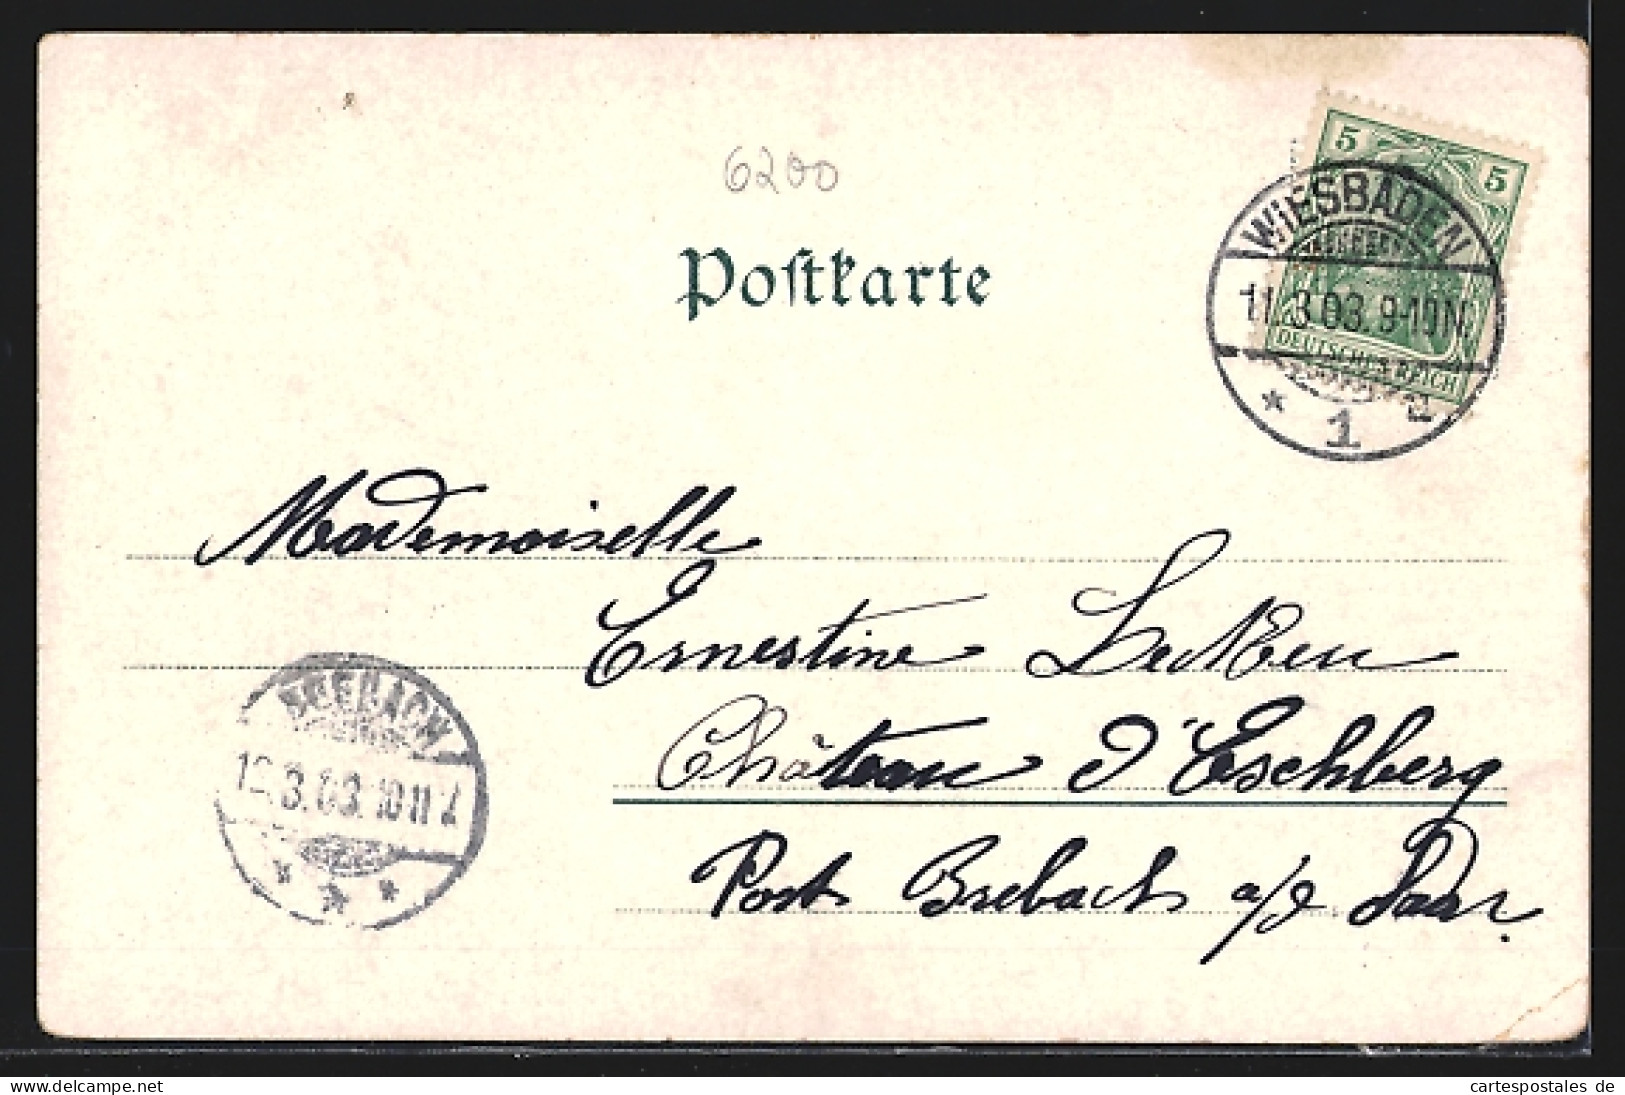 6200
Postkarte
5 5
WIESBADEN
11.3.03. 9-10N.
DEUTSCHES REICH
* 1 a
Mademoiselle
Ernestine Decken
Château d'Eschberg
Post Brebach a/d Saar.
BREBACH
12.3.03. 10-11
* * *
www.cartespostales.de
cartespostales de